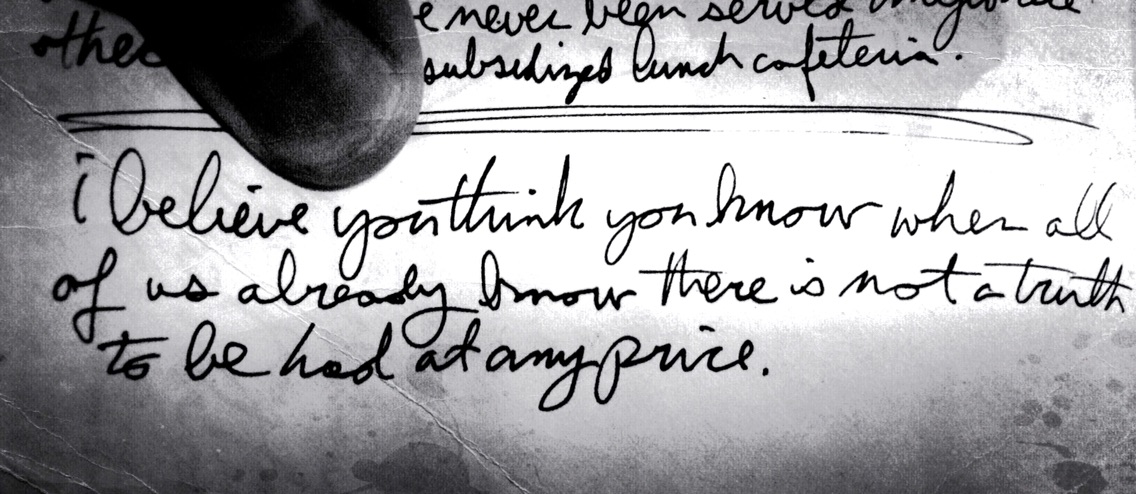 e never been served anywhere
other subsidized lunch cafeteria.
i believe you think you know when all
of us already know there is not a truth
to be had at any price.